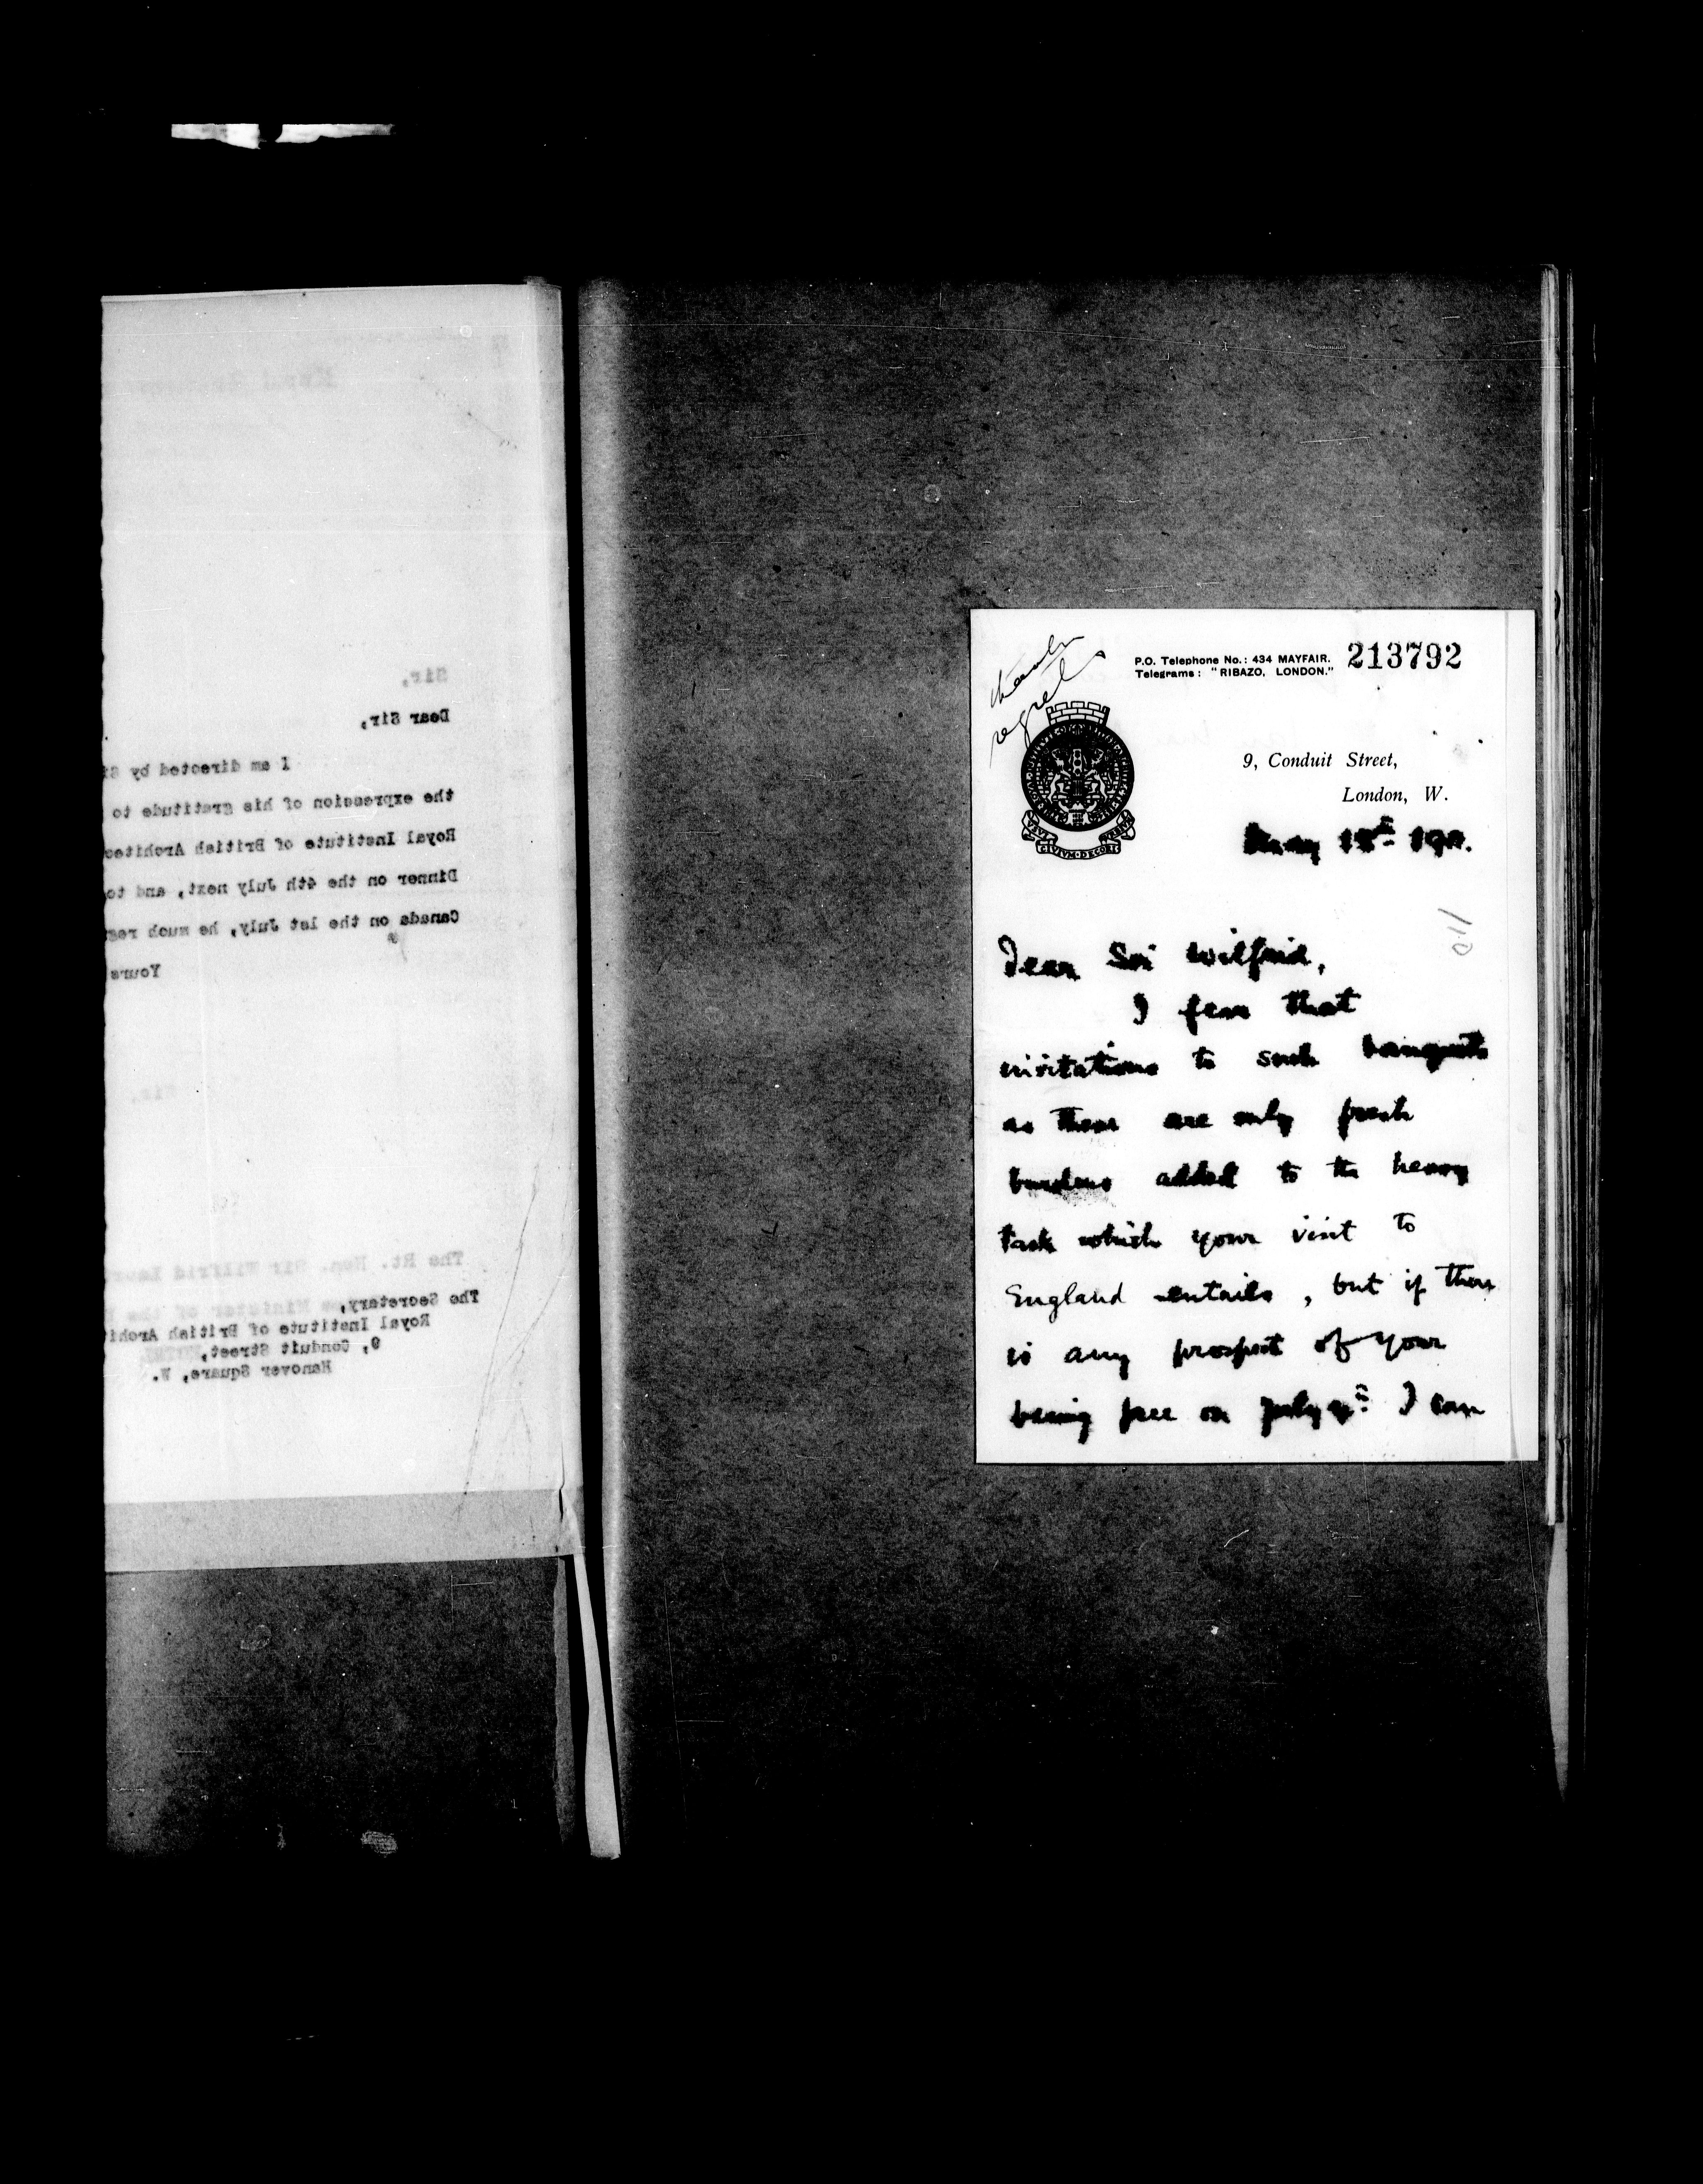 Sir,
Dear Sir,
I am directed by Si
the expression of his gratitude to
Royal Institute of British Architec
Dinner on the 4th July next, and to
Canada on the 1st July, he much reg
Yours
Sir,
The Rt. Hon. Sir Wilfrid Laur
The Secretary,
Royal Institute of British Archit
9, Conduit Street,
Hanover Square, W.
thanks
regrets
P.O. Telephone No.: 434 MAYFAIR.
Telegrams: "RIBAZO, LONDON."
213792
CIVIVM·DECORI
9, Conduit Street,
London, W.
Dear Sir Wilfrid,
I fear that
invitations to such banquets
as these are only fresh
burdens added to the heavy
task which your visit to
England entails, but if there
is any prospect of your
being free on July 4th I can